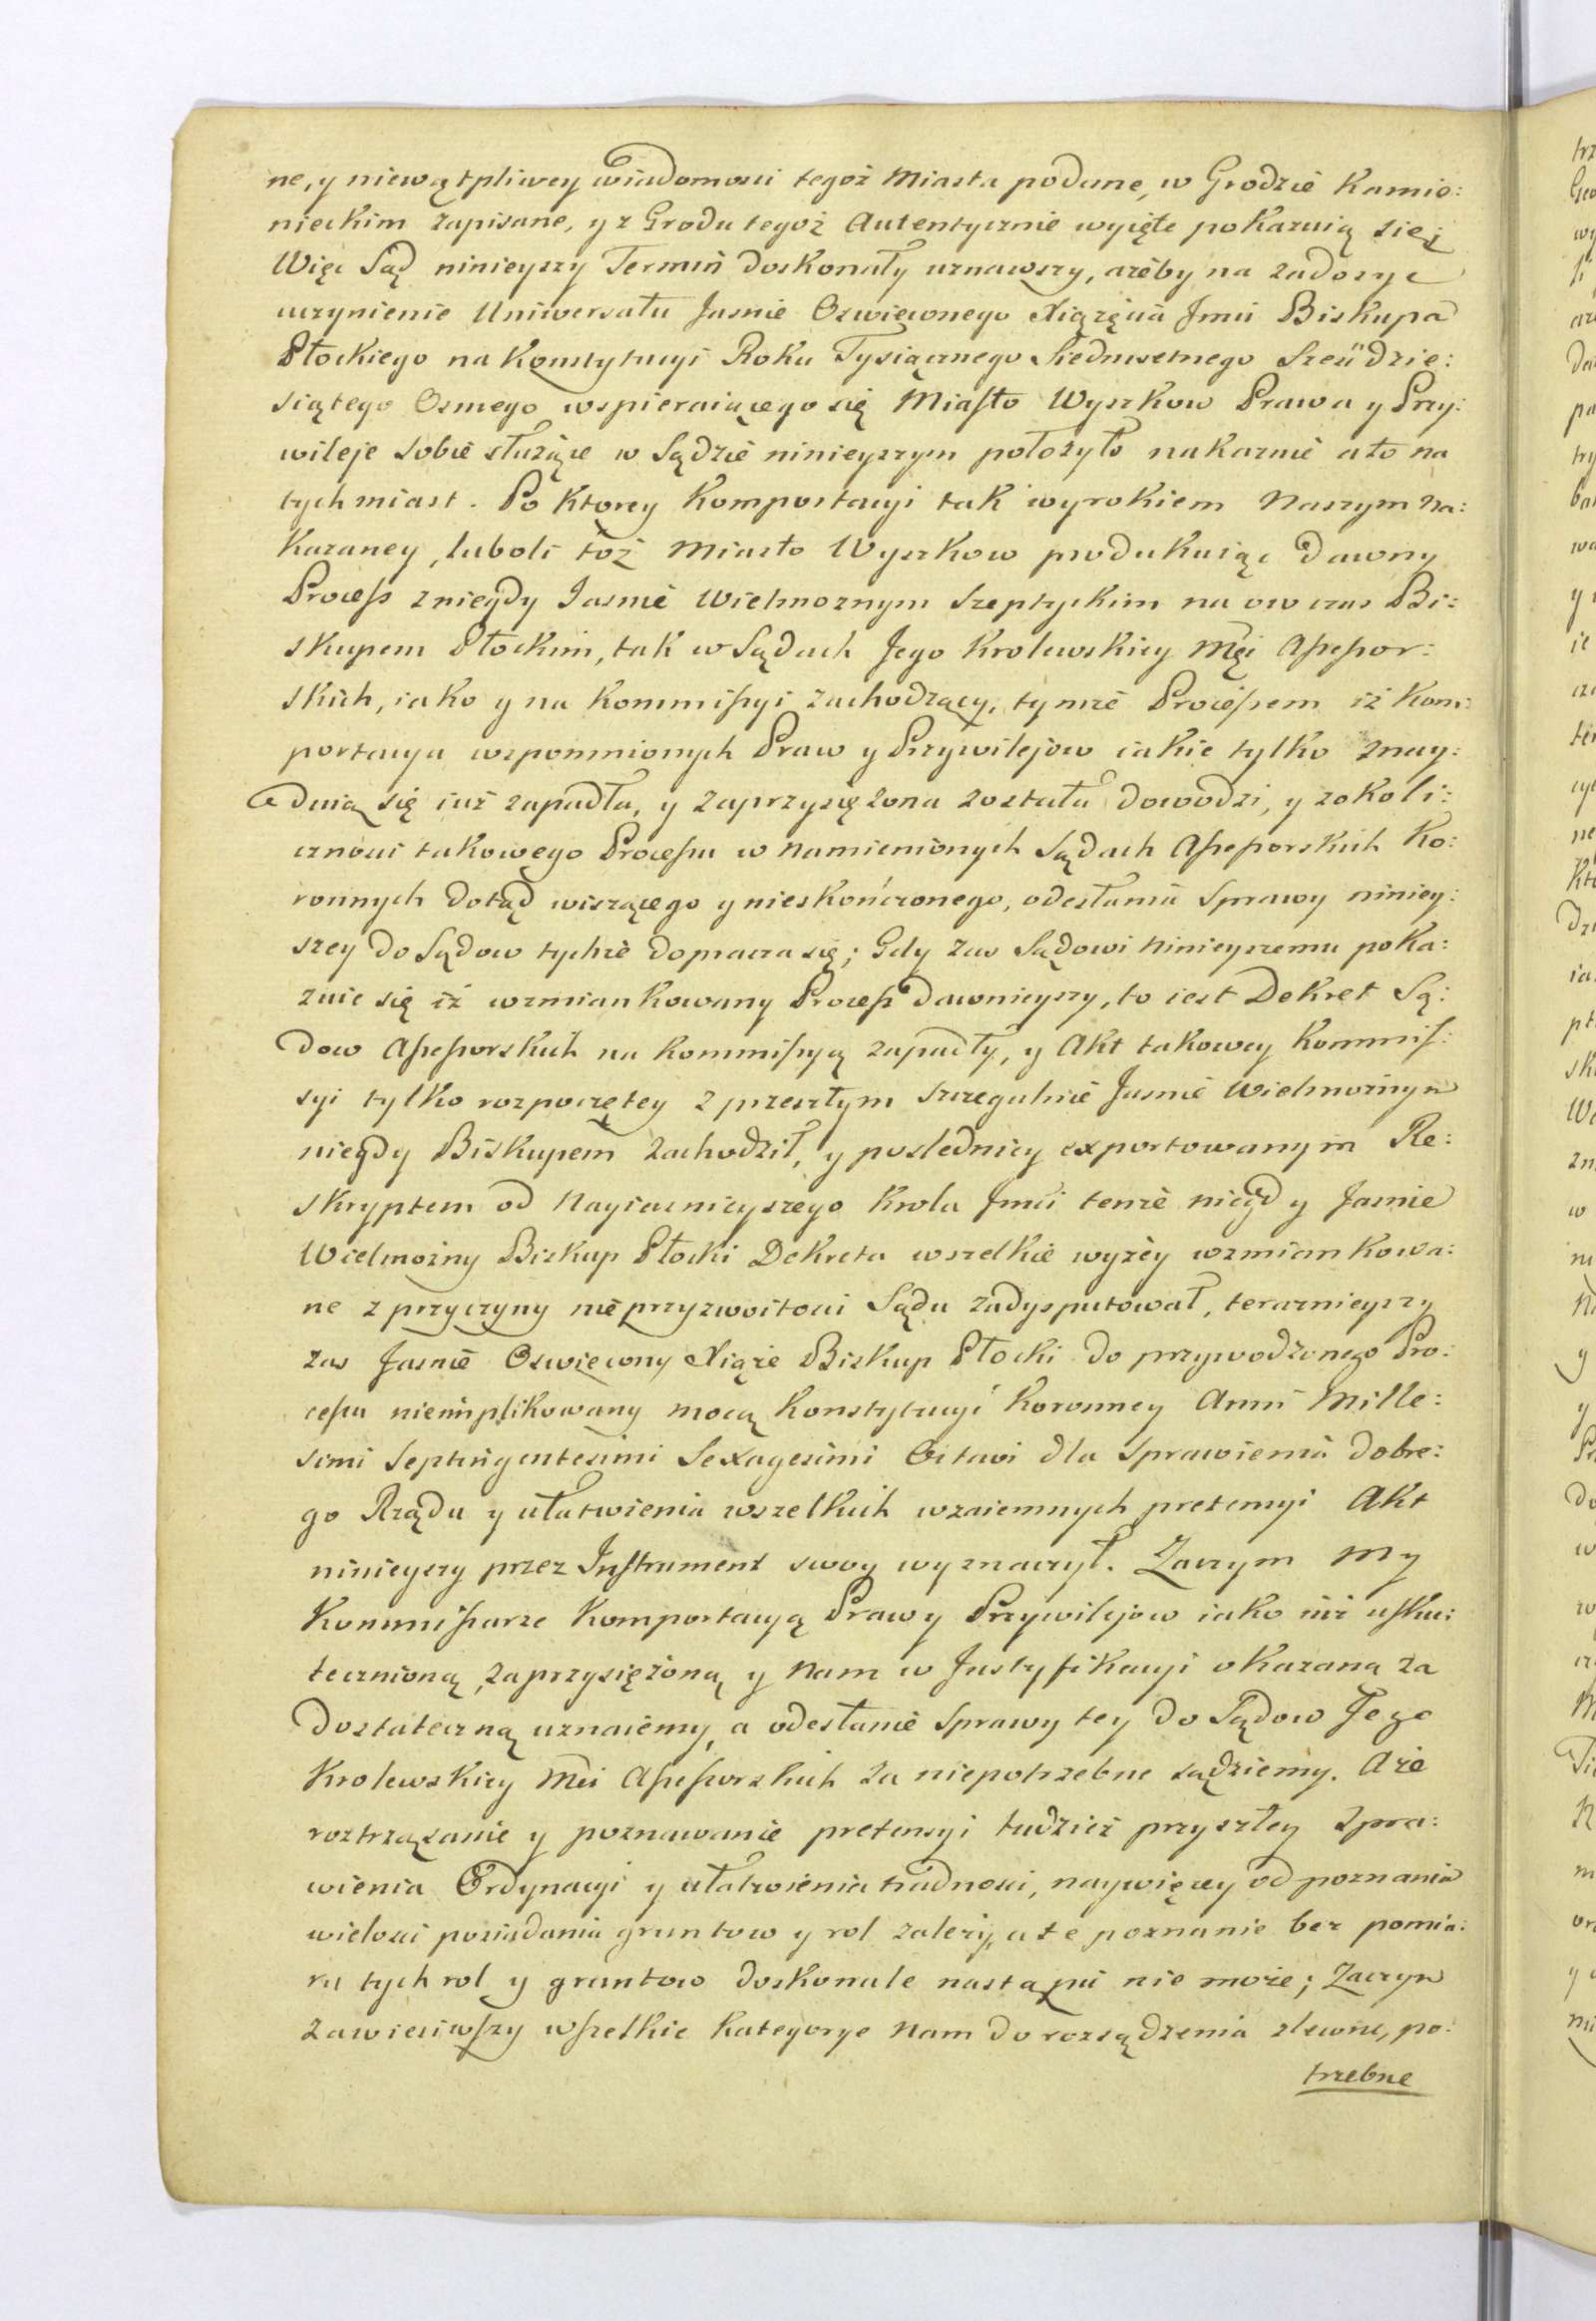 ne, y niewątpliwey wiadomosci tegoż Miasta podane, w Grodzie Kamie:
nieckim zapisane, y z Grodu tegoż Autentycznie wyięte pokazuią się;
Więc Sąd ninieyszy Termin doskonały uznawszy, ażeby na zadosyc
uczynienie Uniwersału Jasnie Oswieconego Xiążęcia Jmci Biskupa
Płockiego na Konstytucyi Roku Tysiącznego Siedmsetnego Szesćdzie:
siątego Osmego wspieraiącego się Miasto Wyszkow Prawa y Przy:
wileje sobie służące w Sądzie ninieyszym położyło nakazuie a to na
tychmiast. Po Ktorey Komportacyi tak wyrokiem Naszym na:
kazaney, luboli toż Miasto Wyszkow produkuiąc dawny
Process z niegdy Jasnie Wielmożnym Szeptyckim na ow czas Bi:
skupem Płockim, tak w Sądach Jego Krolewskiey Mci Assessor:
skich, iako y na Kommissyi zachodzący, tymże Processem iż Kom:
portacya wspomnionych Praw y Przywilejow iakie tylko znay:
duią się iuż zapadła, y zaprzysiężona została dowodzi, y z okoli:
cznosci takowego Processu w namienionych Sądach Assessorskich Ko:
ronnych dotąd wiszącego y nieskończonego, odesłania Sprawy niniey:
szey do Sądow tychże dopracza się; Gdy zas Sądowi Ninieyszemu poka:
zuie się iż wzmiankowany Process dawnieyszy, to iest Dekret Są:
dow Assessorskich na Kommissyą zapadły, y Akt takowey Kommis:
syi tylko rozpoczętey z przeszłym szczegulnie Jasnie Wielmożnym
niegdy Biskupem zachodził, y posledniey exportowanym Re:
skryptem od Nayiasnieyszego Krola Jmci tenże niegdy Jasnie
Wielmożny Biskup Płocki Dekreta wszelkie wyżey wzmiankowa:
ne z przyczyny nieprzyzwoitosci Sądu zadysputował, teraznieyszy
zas Jasnie Oswiecony Xiąże Biskup Płocki do przywodzonego Pro:
cessu nieimplikowany mocą Konstytucyi Koronney Anni Mille:
simi Septingentesimi Sexagesimi Octavi dla Sprawienia dobre:
go Rządu y ułatwienia wszelkich wzaiemnych pretensyi Akt
ninieyszy przez Instrument swoy wyznaczył. Zaczym My
Kommissarze Komportacyą Praw y Przywilejow iako iuż usku:
tecznioną, zaprzysiężoną y Nam w Justyfikacyi okazaną za
dostateczną uznaiemy, a odesłanie Sprawy tey do Sądow Jego
Krolewskiey Mci Assessorskich za niepotrzebne sądziemy. Aże
roztrząsanie y poznawanie pretensyi tudzież przyszłey Spra:
wienia Ordynacyi y ułatwienia trudnosci, naywięcey od poznania
wielosci posiadania gruntow y rol zależy, a te poznanie bez pomia:
ru tych rol y gruntow doskonale nastąpić nie może; Zaczym
zawiesiwszy wszelkie Kategorye Nam do rozsądzenia zlewne, po:
trzebne